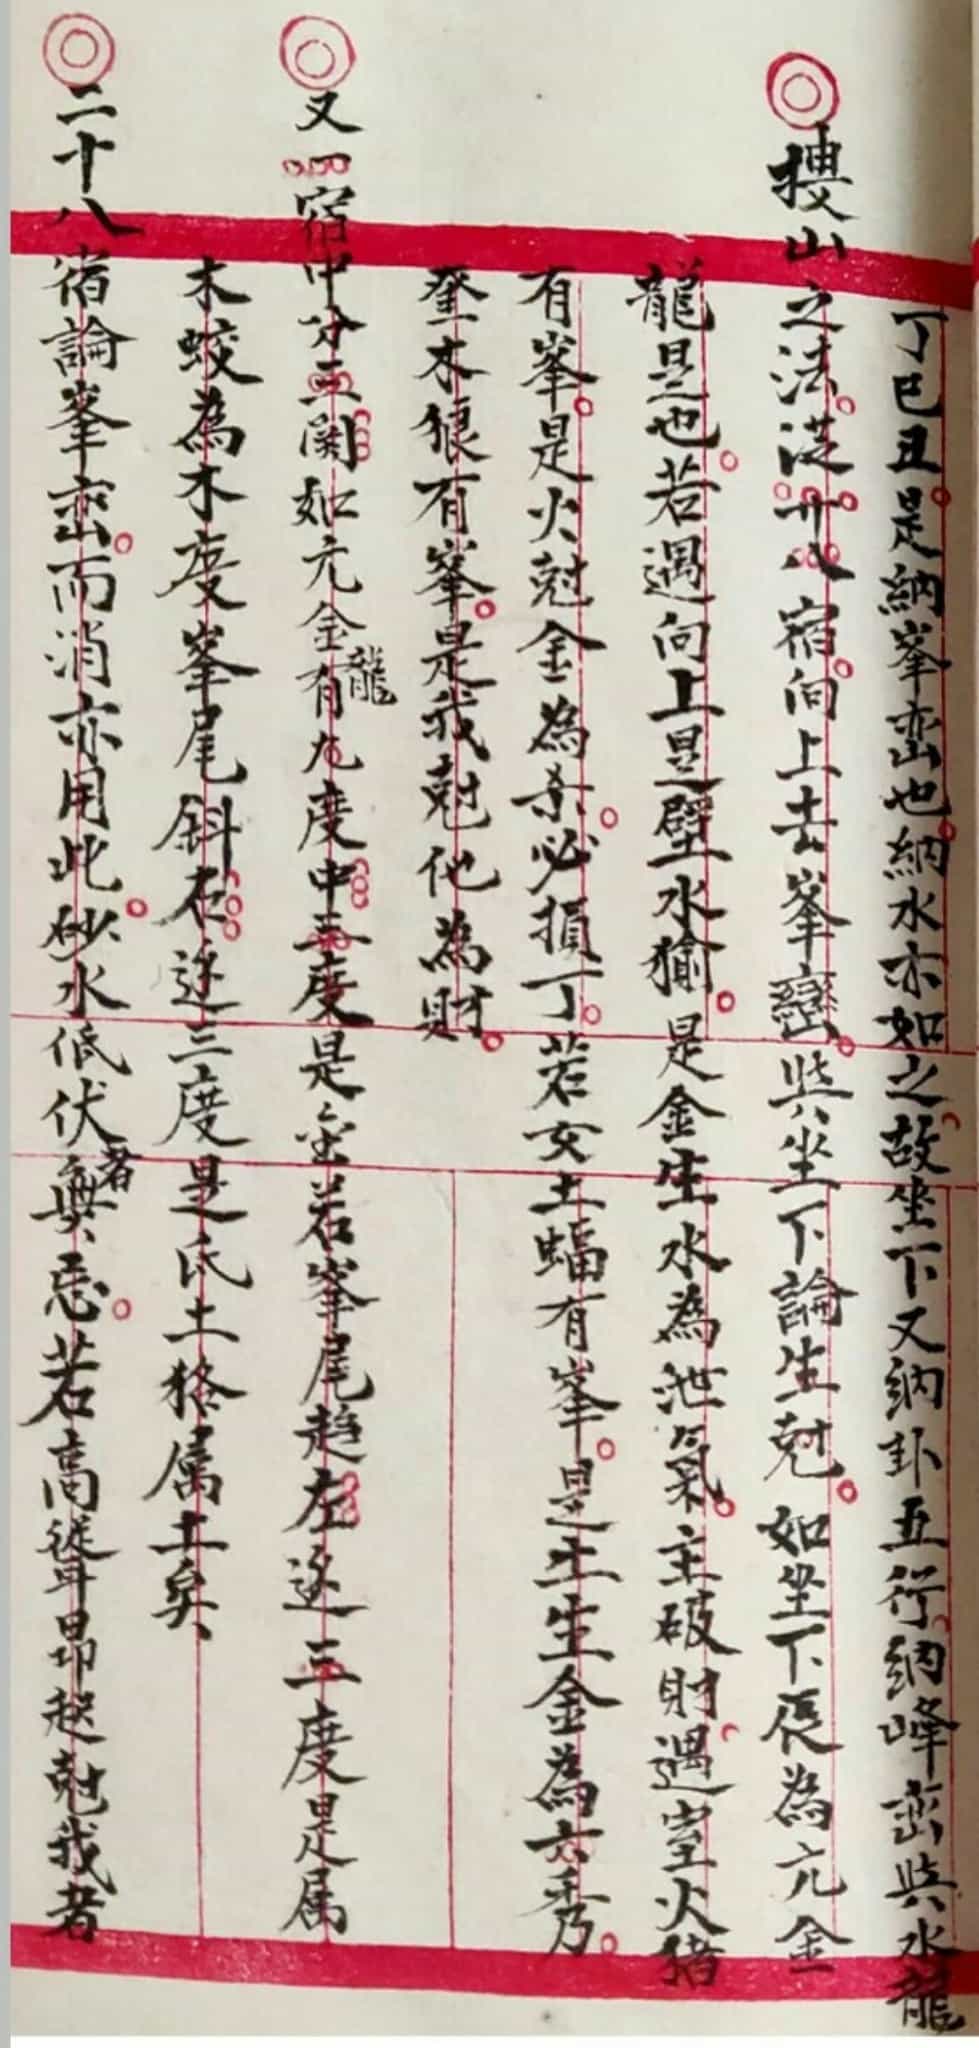 丁巳丑是納峯巒也納水亦如之故坐下又納卦五行納峰巒與水龍
摟山之法從廿八宿向上去峯巒與坐下論生尅如坐下辰為亢金
龍是也若遇向上是壁水㺄是金生水為泄氣主破財遇室火猪
有峯是火尅金為杀必損丁若女土蝠有峯是土生金為六秀
奎木狼有峯是我尅他為財
又一宿中分三関如亢金龍有九度中三度是金若峯尾趋左边三度是属
木蛟為木度峯尾斜右边三度是氐土狢属土矣
二十八宿論峯巒而消亦用此砂水低伏者無忌若高聳昂起尅我者